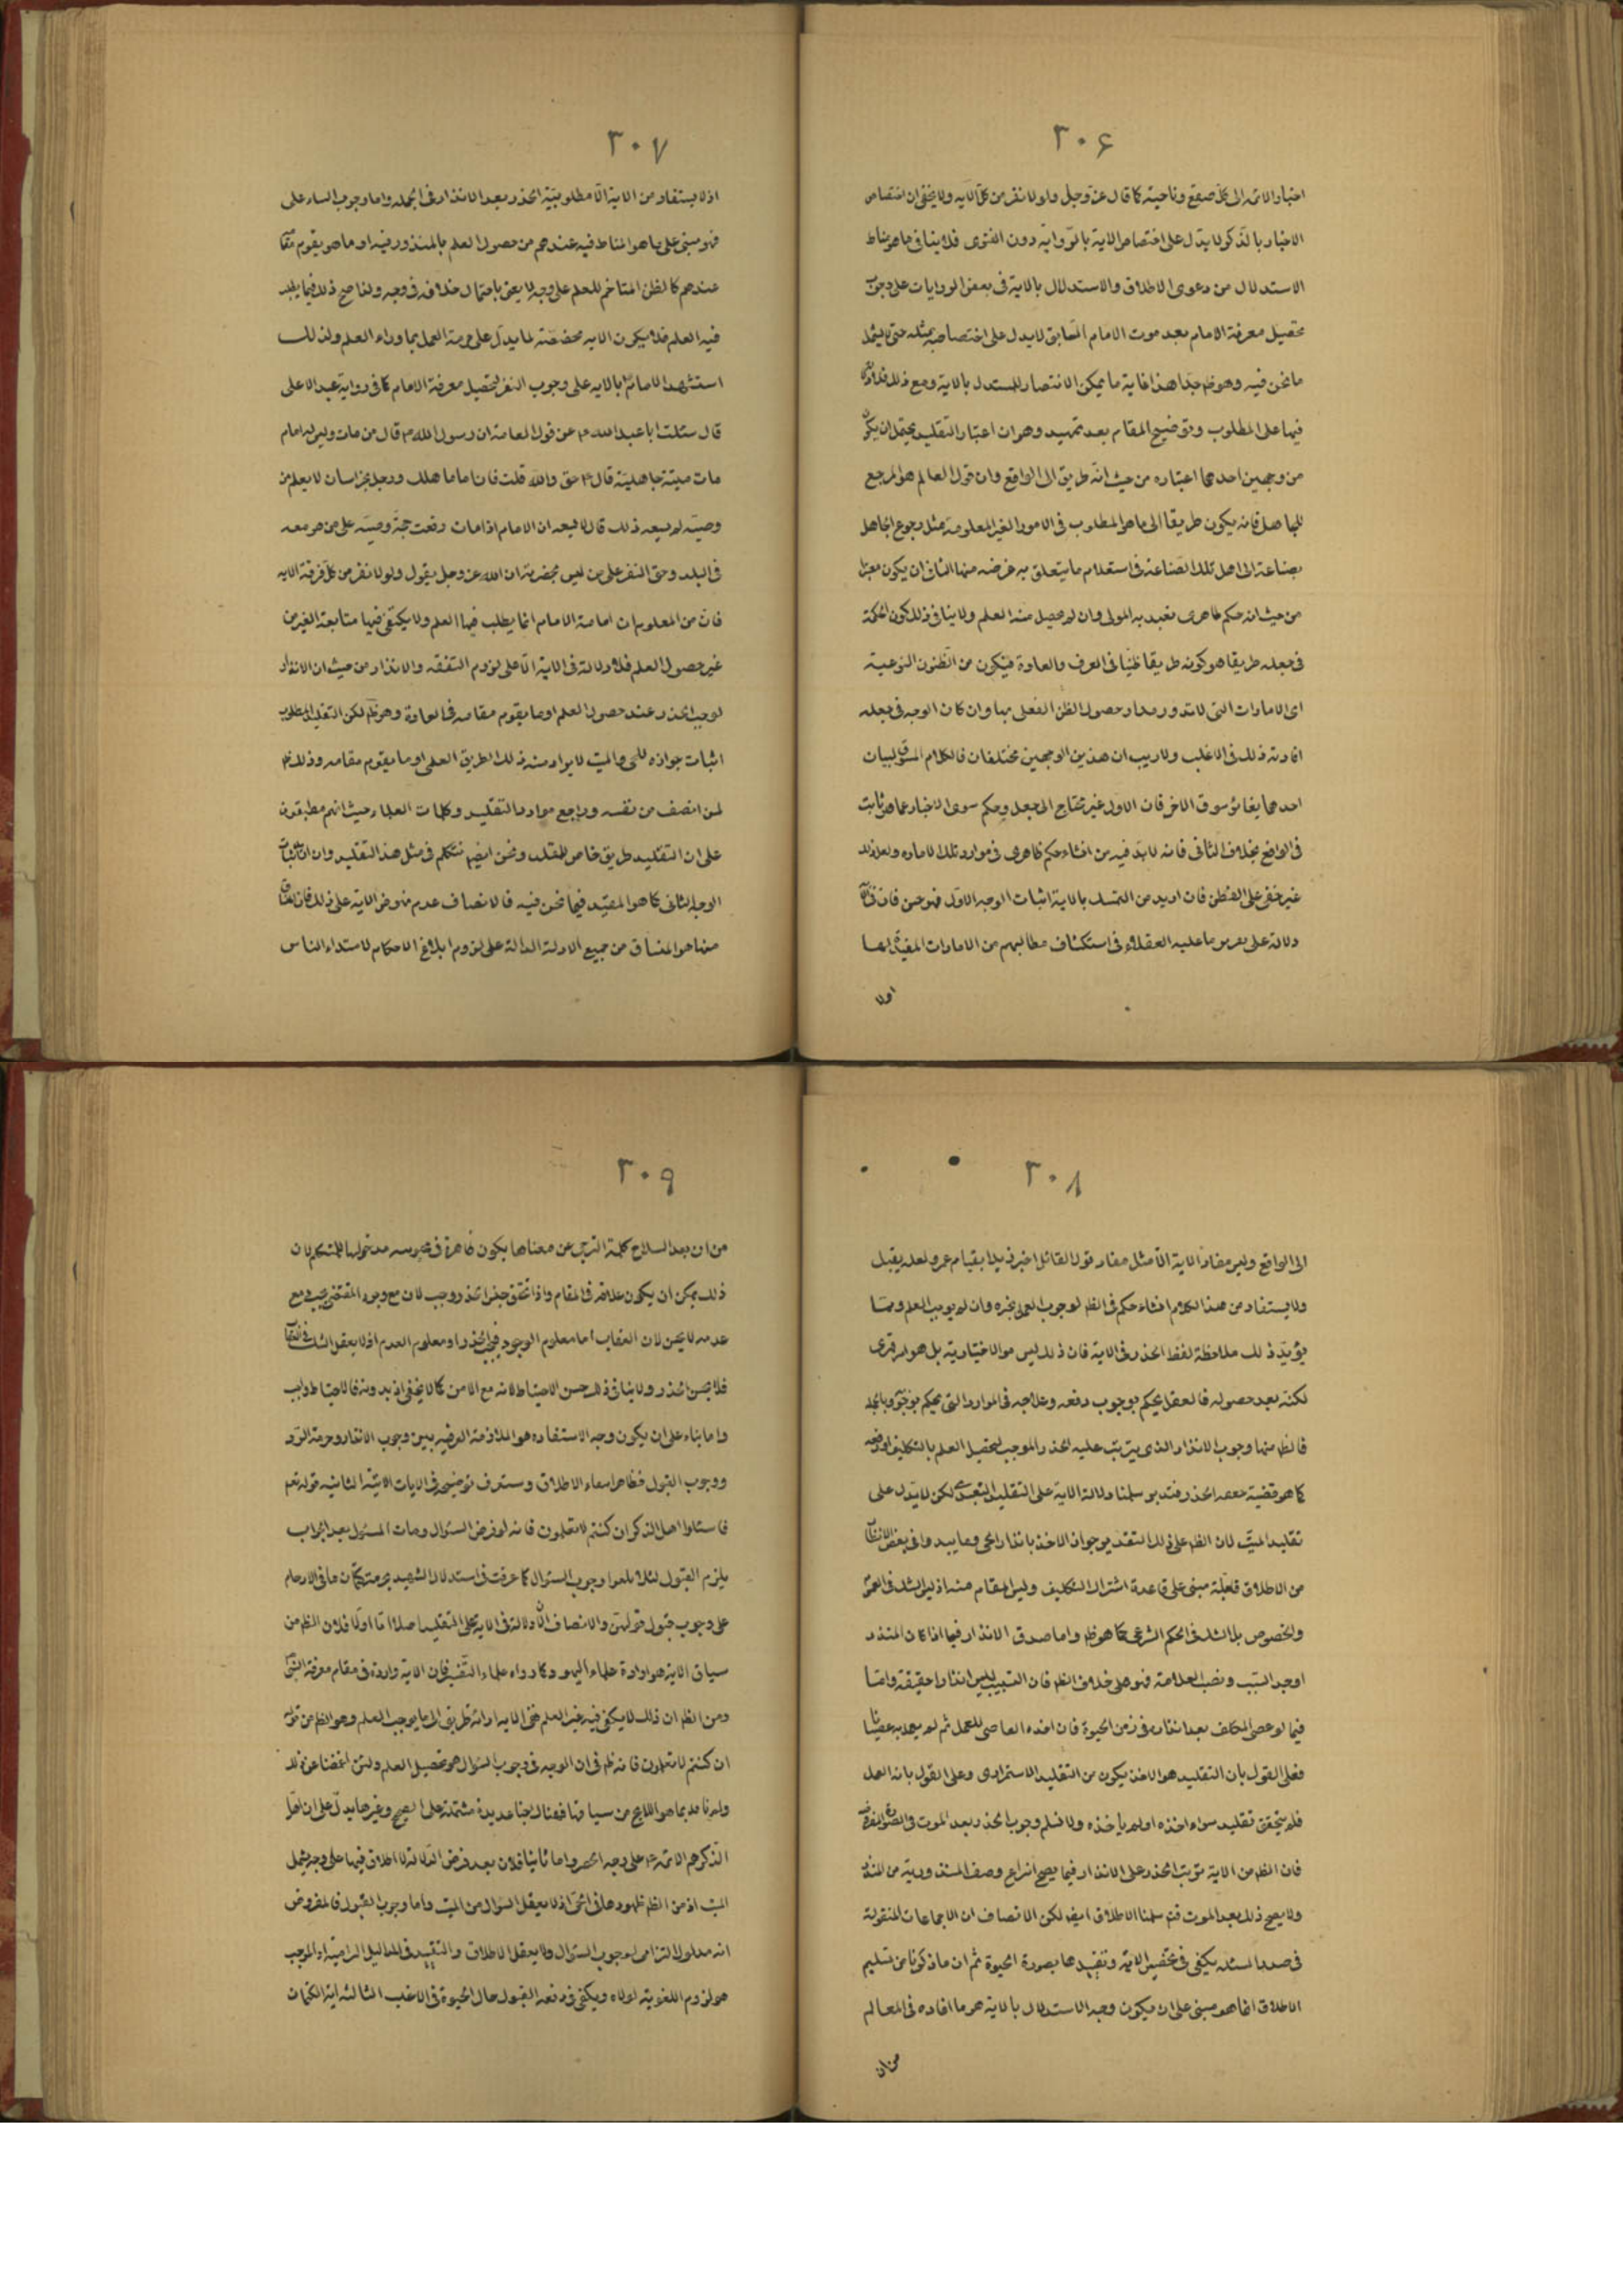 ٣٠۶
اخبار الائمه الى كلّ صقع وناحية كما قال عزّ وجل ولولا نفر من كلّ الايه ولا يخفى ان اختصاص
الاخبار بالذكر لا يدل على اختصاص الاية بالرّواية دون الفتوى فلا ينافى ما هو مناط
الاستدلال من دعوى الاطلاق والاستدلال بالاية فى بعض الروايات على وجوب
تحصيل معرفة الامام بعد موت الامام السّابق لا يدل على اختصاصه بمثله حتى لا يشمل
ما نحن فيه وهو ظ جدا هذا غاية ما يمكن الانتصار للمستدل بالاية ومع ذلك فلا دلالة
فيها على المطلوب وتوضيح المقام بعد تمهيد وهو ان اعتبار التقليد يحتمل ان يكون
من وجهين احدهما اعتباره من حيث انّه طريق الى الواقع وان قول العالم هو المرجع
للجاهل فانه يكون طريقا الى ما هو المطلوب فى الامور الغير المعلومة مثل رجوع الجاهل
بصناعة الى اهل تلك الصّناعة فى استعلام ما يتعلق به غرضه منها الثانى ان يكون معتبرا
من حيث انه حكم ظاهرى تعبد به المولى وان لم يحصل منه العلم ولا ينافى ذلك كون الحكمة
فى جعله طريقا هو كونه طريقا ظنّيا فى العرف والعادة فيكون من الظنون النوعية
اى الامارات التى لا تدور مدار حصول الظن الفعلى بها وان كان الوجه فى جعله
افادته ذلك فى الاغلب ولا ريب ان هذين الوجهين مختلفان فالكلام المسوق لبيان
احدهما يغاير سوق الاخر فان الاول غير محتاج الى جعل وحكم سوى الاخبار عما هو ثابت
فى الواقع بخلاف الثانى فانه لا بدّ فيه من انشاء حكم ظاهرى فى موارد تلك الاماره ولعل ذلك
غير خفى على الفطن فان اريد من التمسك بالاية اثبات الوجه الاول فهو حسن فان
دلالة على تقرير ما عليه العقلاء فى استكشاف مطالبهم من الامارات المفيدة لها
اولا
٣٠٧
اذ لا يستفاد من الاية الّا مطلوبيّة الحذر بعد الانذار فى الجمله واما وجوب البناء على
فهو مبنى على ما هو المناط فيه عندهم من حصول العلم بالمنذور فيه او ما هو يقوم مقامه
عندهم كالظن المتاخم للعلم على وجه لا يعتنى باحتمال خلافه فى وجه ولفاصح ذلك فيما يطلب
فيه العلم فلا يكون الايه مخصّصة لما يدلّ على حرمة العمل بما وراء العلم ولذلك
استشهد الامام بالايه على وجوب النفر لتحصيل معرفة الامام كما فى رواية عبد الاعلى
قال سئلت ابا عبد الله عن قول العامة ان رسول الله ص قال من مات وليس له امام
مات ميتة جاهلية قال حق والله قلت فان اماما هلك ورجل بخراسان لا يعلم من
وصيّه لم يسعه ذلك قال لا يسعه ان الامام اذا مات رفعت حجة وصيّه على من هو معه
فى البلد وحق النفر على من ليس بحضرته ان الله عز وجل يقول ولولا نفر من كل فرقة الايه
فان من المعلوم ان امامة الامام انما يطلب فيها العلم ولا يكتفى فيها متابعة الغير من
غير حصول العلم فلا دلالة فى الاية الّا على لزوم التفقه والانذار من حيث ان الانذار
توجب الحذر عند حصول العلم او ما يقوم مقامه فى العادة وهو ظ لكن التقليد المطلوب
اثبات جوازه للحى والميت لا يراد منه ذلك الطريق العلمى او ما يقوم مقامه وذلك ظ
لمن انصف من نفسه وراجع موارد التقليد وكلمات العلماء حيث انهم مطبقون
على ان التقليد طريق خاص للمقلد ونحن ايضا نتكلم فى مثل هذا التقليد وان اريد اثبات
الوجه الثانى كما هو المفيد فيما نحن فيه فالانصاف عدم نهوض الاية على ذلك فان المنساق
منها هو المنساق من جميع الادلة الدالة على لزوم ابلاغ الاحكام لاهتداء الناس
٣٠٨
الى الواقع وليس مفاد الاية الّا مثل مفاد قول القائل اخبر زيدا بقيام عمرو لعله يقبل
ولا يستفاد من هذا الكلام انشاء حكم فى الظ لوجوب العمل بخبره وان لم يوجب العلم ومما
يؤيّد ذلك ملاحظة لفظ الحذر فى الاية فان ذلك ليس من الاختيارية بل هو امر قهرى
لكنه بعد حصوله فالعقل يحكم بوجوب دفعه وعلاجه فى الموارد التى يحكم بوجوبه وبالجملة
فالظ منها وجوب الانذار الذى يترتب عليه الحذر الموجب لتحصيل العلم بالتكليف او دفعه
كما هو قضية معه الحذر فتدبر سلمنا دلالة الاية على التقليد التعبدى لكن لا يدل على
تقليد الميّت لان الظ على ذلك التقدير جواز الاخذ بانذار الحى وما يبدوا فى بعض الانظار
من الاطلاق فغلة مبنى على قاعدة اشتراك التكليف وليس المقام منه اذ ليس الشك فى العموم
والخصوص بل الشك فى الحكم الشرعى كما هو ظ واما صدق الانذار فيما اذا كان المنذر
اوجد السّبب ونصب العلامة فهو على خلاف الظ فان التسبيب ليس انذارا حقيقة واما
فيما لو عصى المكلف بعد انذاره فى زمن الحيوة فان اخذه العاصى للعمل ثم لم يعمل به عصيانا
فعلى القول بان التقليد هو الاخذ يكون من التقليد الاستمرارى وعلى القول بانه العمل
فلم يتحقق تقليد سواء اخذه او لم ياخذه ولا نسلم وجوب الحذر بعد الموت فى الصورة المفروضة
فان الظ من الاية ترتب الحذر على الانذار فيما يصح انتزاع وصف المنذورية من المنذر
ولا يصح ذلك بعد الموت فتم سلمنا الاطلاق ايض لكن الانصاف ان الاجماعات المنقولة
فى صدر المسئله يكفى فى تخصيص الاية وتقييدها بصورة الحيوة ثم ان ما ذكرنا من تسليم
الاطلاق انما هو مبنى على ان يكون وجه الاستدلال بالاية هو ما افاده فى المعالم
من ان
٣٠٩
من ان بعد انسلاخ كلمة الترجى عن معناها يكون ظاهرة فى محبوبيه مدخولها للمتكلم لان
ذلك يمكن ان يكون علاقة فى المقام واذا تحقق حسن الحذر وجب لان مع وجود المقتضى يجب ومع
عدمه لا يحسن لان العقاب اما معلوم الوجود فيجب الحذر او معلوم العدم اذ لا يعقل الشك فى العقاب
فلا يحسن الحذر ولا ينافى ذلك حسن الاحتياط لانه مع الامن كما لا يخفى اذ بدونه فالاحتياط واجب
واما بناء على ان يكون وجه الاستفاده هو الملازمة العرفيه بين وجوب الانذار وحرمة الرد
ووجوب القبول فظاهر انتفاء الاطلاق وستعرف توضيحه فى الايات الاتية الثانيه قوله تعالى
فاسئلوا اهل الذكر ان كنتم لا تعلمون فانه لو فرض السؤال ومات المسئول بعد الجواب
يلزم القبول لئلا يلغوا وجوب السؤال كما عرفت فى استدلال الشهيد بحرمة كتمان ما فى الارحام
على وجوب قبول قولهن والانصاف ان لا دلالة فى الاية على التقليد اصلا اما اولا فلان الظ من
سياق الاية هو ارادة علماء اليهود كما رواه علماء التفسير فان الاية واردة فى مقام معرفة النبى
ومن الظ ان ذلك لا يكفى فيه غير العلم ففى الايه ارائة طريق الى ما يوجب العلم وهو الظ من قوله
ان كنتم لا تعلمون فانه ظ فى ان الوجه فى وجوب السؤال هو تحصيل العلم ولئن اغمضنا عن ذلك
ولم نأخذ بما هو اللايح من سياقها فهناك اخبار عديدة مشتملة على الصحيح وغيرها يدل على ان اهل
الذكر هم الائمة على وجه الحصر واما ثانيا فلان بعد فرض الدلالة لا اطلاق فيها على وجه يشمل
الميت اذ من الظ ظهورها فى الحى اذ لا يعقل السؤال من الميت واما وجوب القبول فالمفروض
انه مدلول التزامى لوجوب السؤال ولا يعقل الاطلاق والتقييد فى المداليل الالتزامية اذ الموجب
هو لزوم اللغوية لولاه ويكفى فى دفعه القبول حال الحيوة فى الاغلب الثالثه اية الكتمان